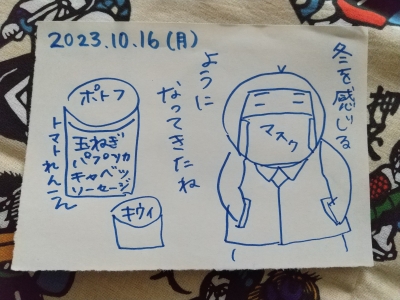 2023.10.16(月)
冬を感じる
ように
なってきたね
マスク
ポトフ
玉ねぎ
パプリカ
キャベツ
ソーセージ
トマトれんこん
キウイ